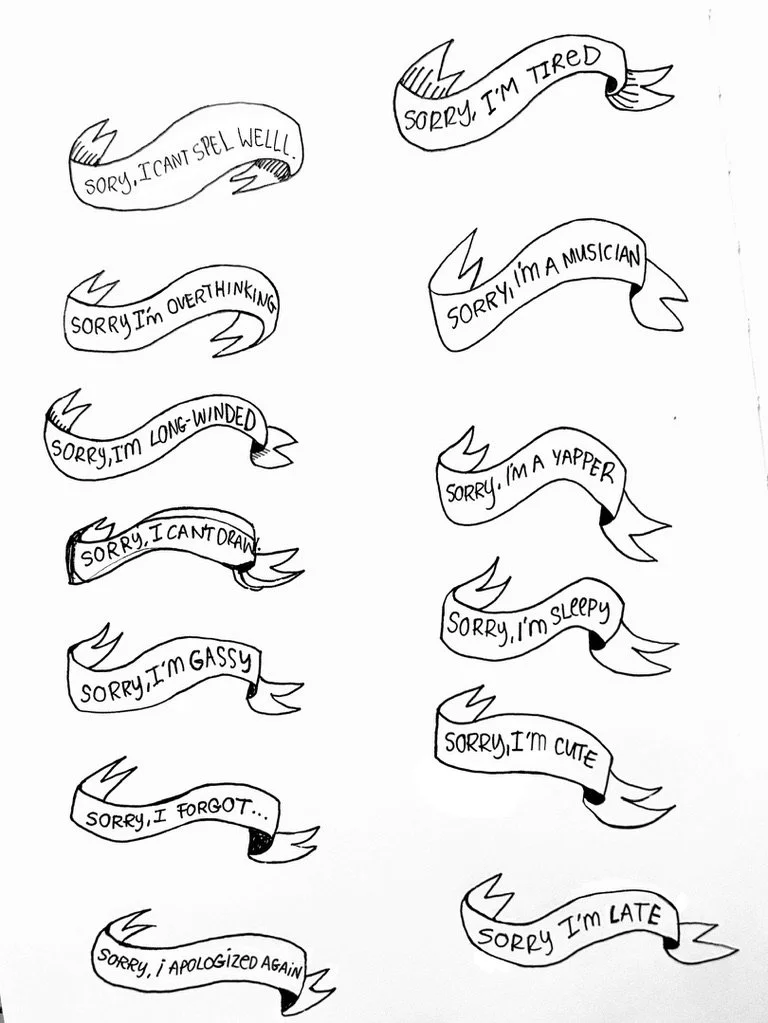 SORY, I CANT SPEL WELLL.
SORRY I'm OVERTHINKING
SORRY, I'M LONG-WINDED
SORRY, I CAN'T DRAW.
SORRY, I'M GASSY
SORRY, I FORGOT...
SORRY, i APOLOGIZED AGAiN
SORRY, I'M TIReD
SORRY, I'm A MUSICIAN
SORRY, I'M A YAPPER
SORRY, I'm SLeePy
SORRY, I'm CUTE
SORRY I'm LATE